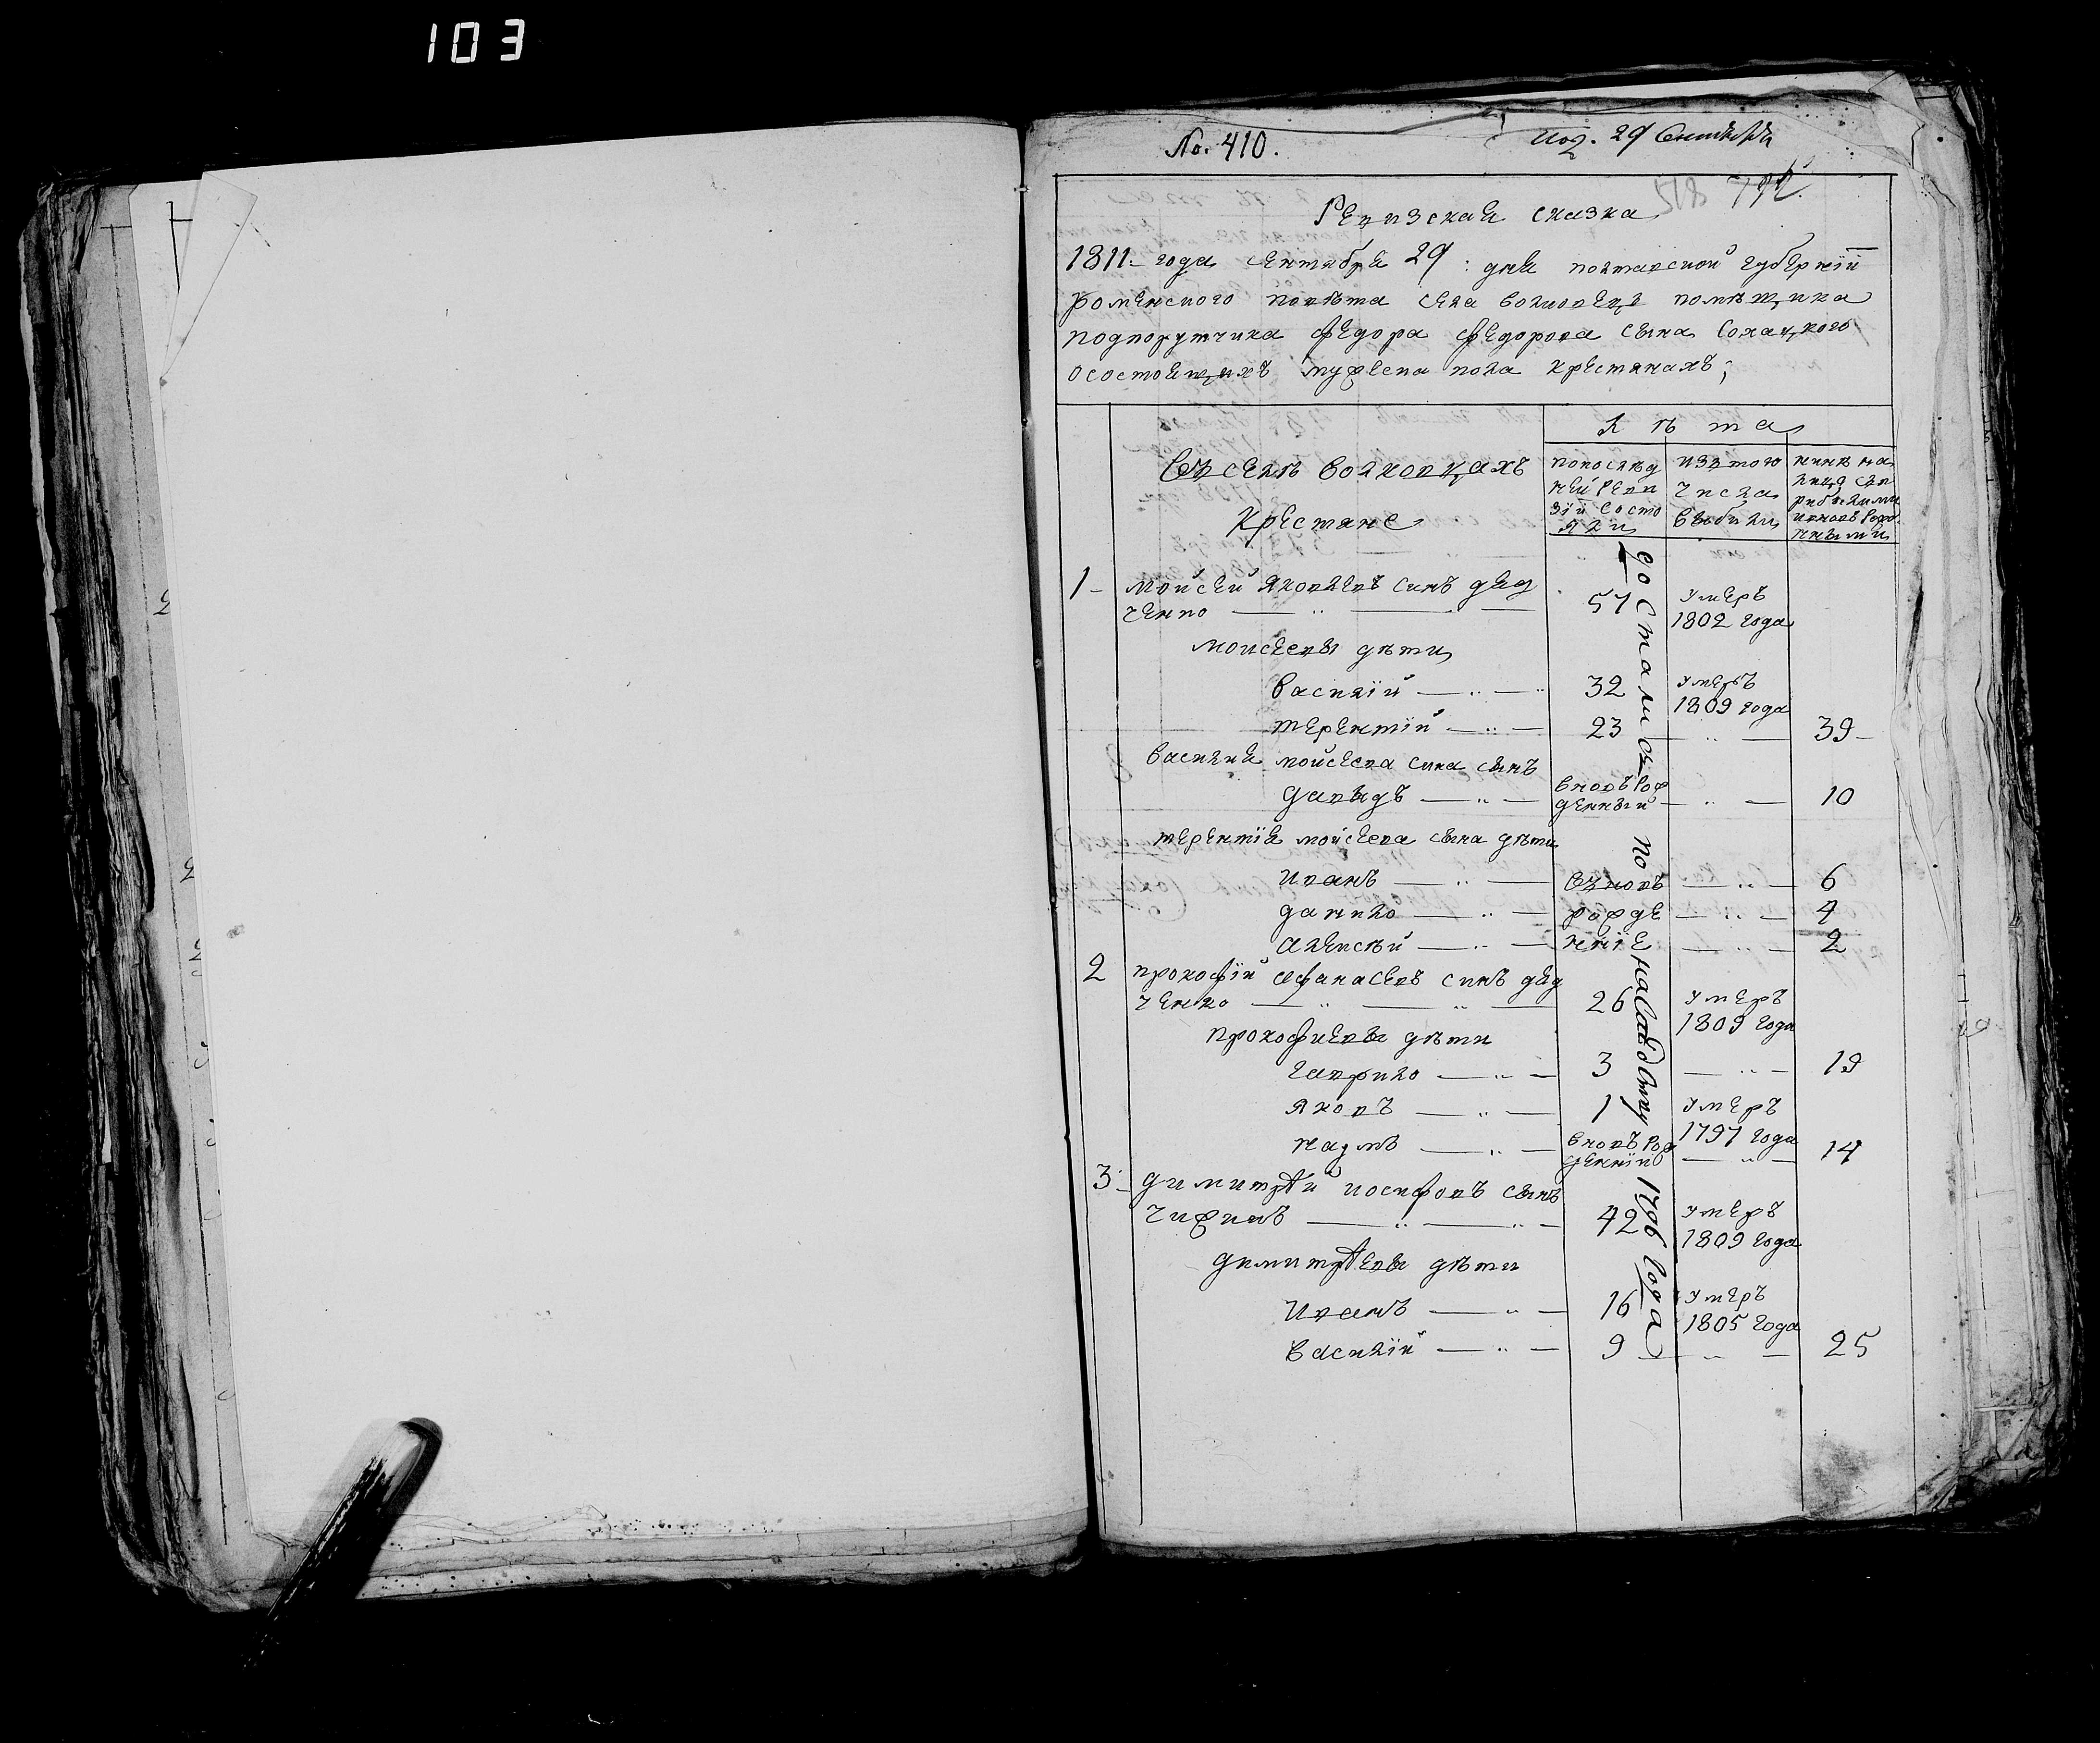 103
No. 410.
29 Сентября
Ревизская сказка
1811 года сентября 29: дня полтавской губернïи
роменского повѣта села волковецъ помѣщика
подпорутчика федора федорова сына Сохацкого
осостоящихъ мужеска пола крестянахъ;
Въ селѣ волковцахъ
Крестяне
Лѣта
попослѣд
ней реви
зïи состо
яли
изтого
числа
выбыли
нинѣ на
лицо съ
рожде
нными
1 мойсей яковлевъ синъ дяд
ченко 57 умеръ
1802 года
мойсеевы дѣти
василïй 32 умеръ
1809 года
терентïй 23 39
василия мойсеева сина сынъ
давыдъ вновърож
денный 10
терентïя мойсеева сына дѣти
иванъ вновъ 6
данило рожде 4
алексѣй нïе 2
2 прокофïй афанасевъ синъ дяд
ченко 26 умеръ
1809 года
прокофиевы дѣти
гаврило 3 19
яковъ 1 умеръ
1797 года
наумъ вновърож
деннïй 14
3 димитрïй иосифовъ сынъ
чижикъ 42 умеръ
1809 года
димитрïевы дѣти
иванъ 16 умеръ
1805 года
василïй 9 25
достались по 1796 года